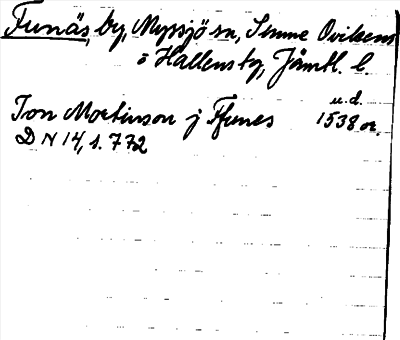 Funäs, by, Myssjö sn, Sunne Ovikens
o Hallens tg, Jämtl. l.
u.d.
Ion Mortinson j Ffunes 1538 or.
D N 14, s. 772